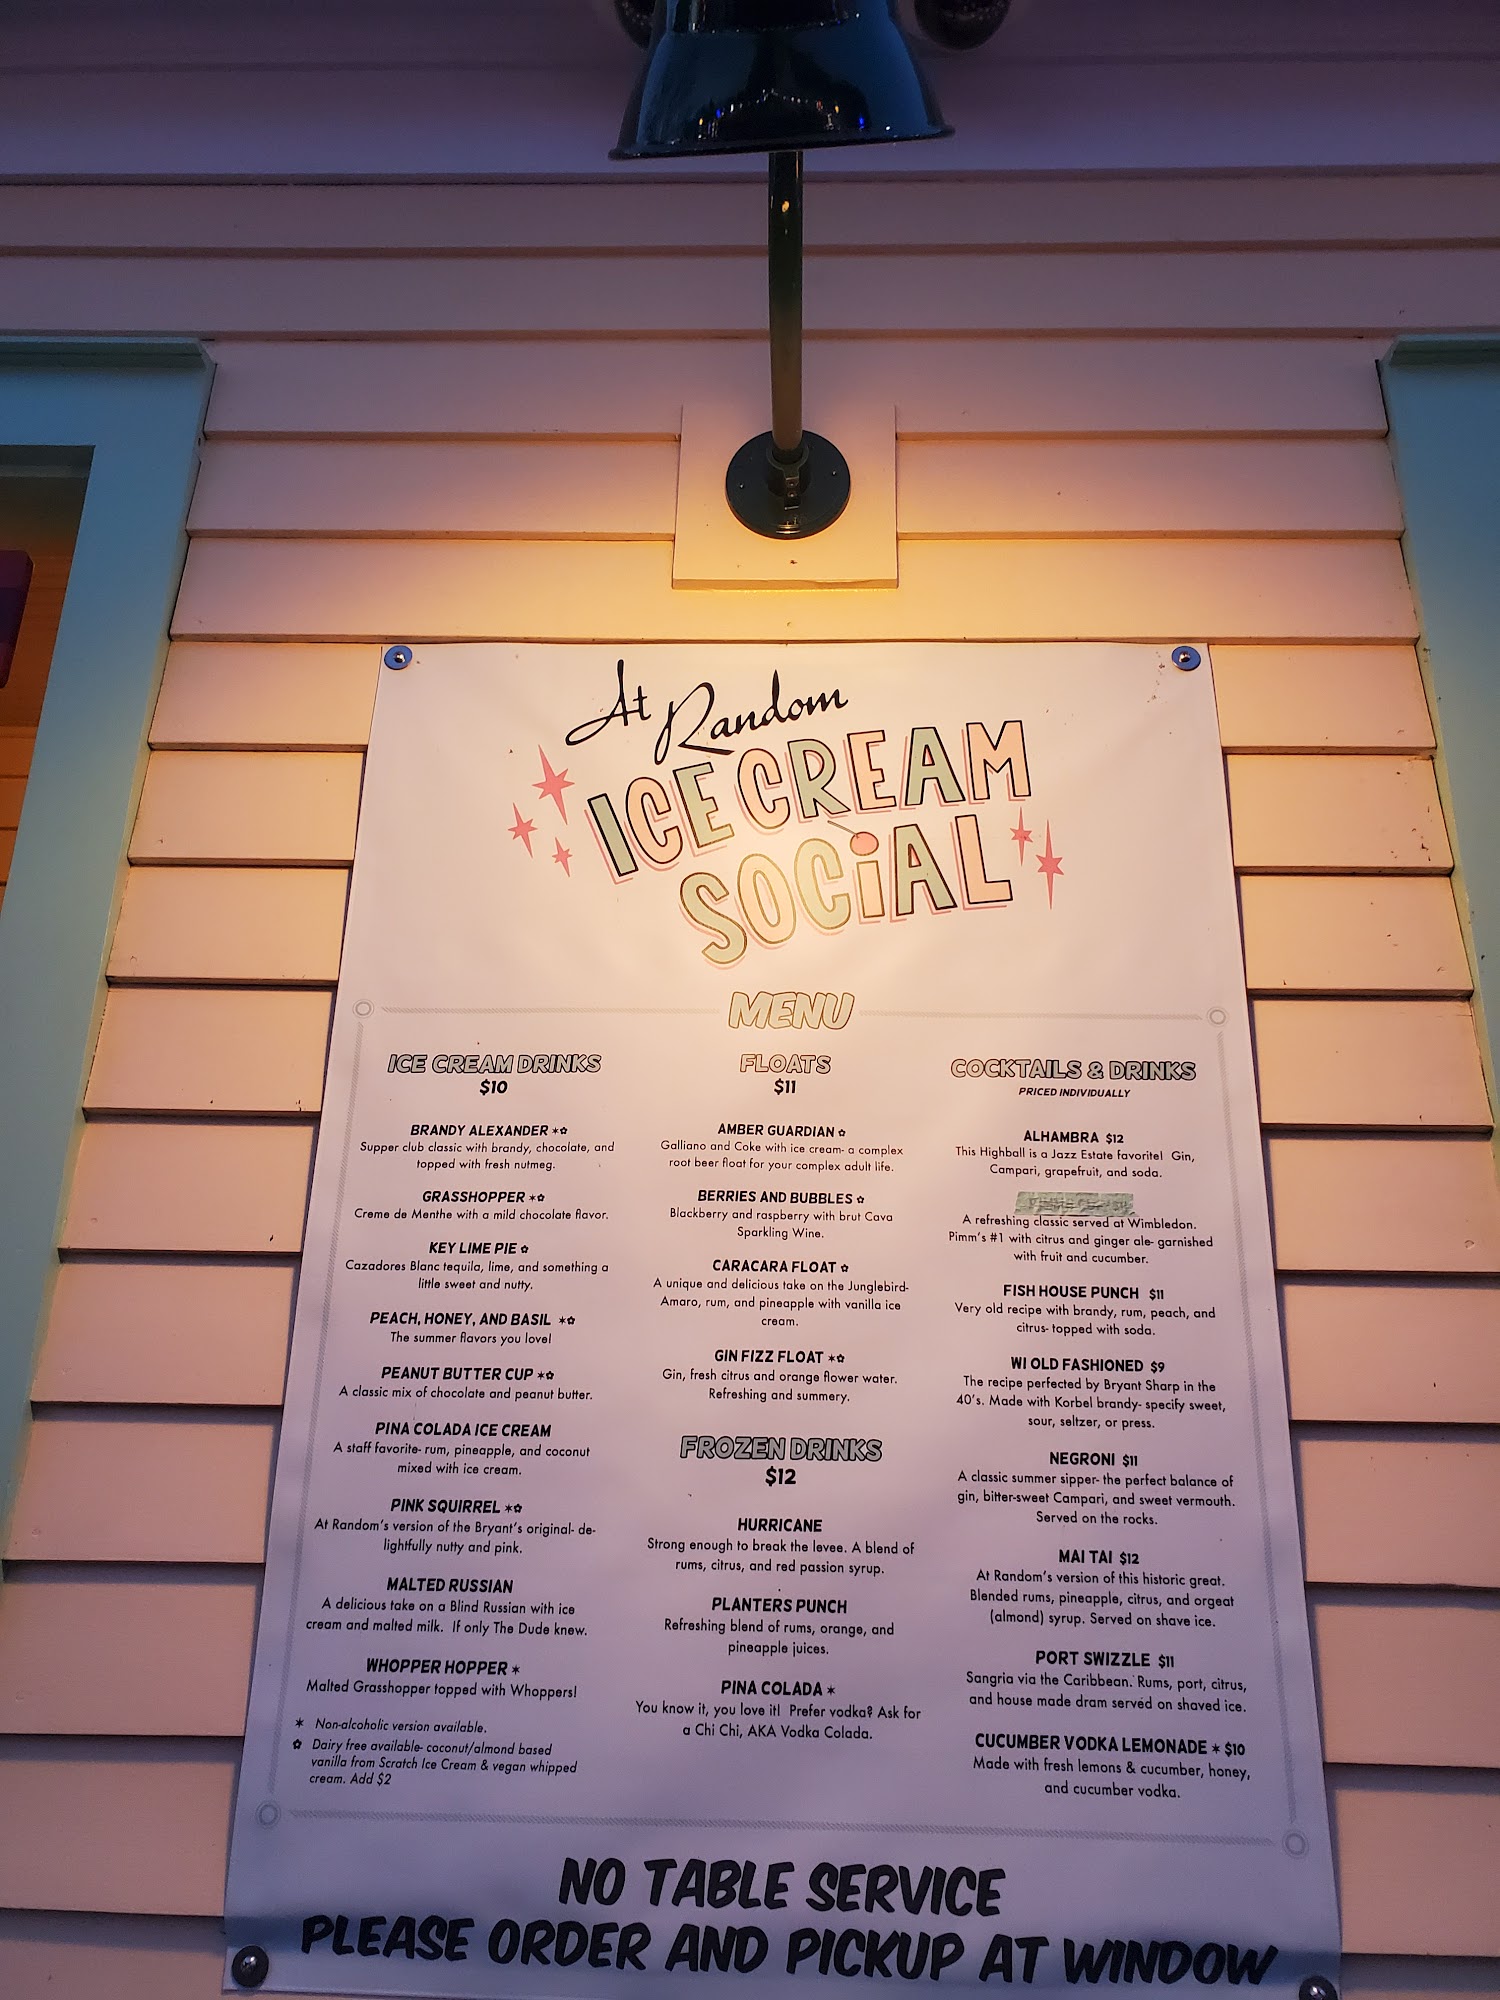 At Random
ICE CREAM
SOCIAL
MENU
ICE CREAM DRINKS
$10
BRANDY ALEXANDER ✶✿
Supper club classic with brandy, chocolate, and
topped with fresh nutmeg.
GRASSHOPPER ✶✿
Creme de Menthe with a mild chocolate flavor.
KEY LIME PIE ✿
Cazadores Blanc tequila, lime, and something a
little sweet and nutty.
PEACH, HONEY, AND BASIL ✶✿
The summer flavors you love!
PEANUT BUTTER CUP ✶✿
A classic mix of chocolate and peanut butter.
PINA COLADA ICE CREAM
A staff favorite- rum, pineapple, and coconut
mixed with ice cream.
PINK SQUIRREL ✶✿
At Random's version of the Bryant's original- de-
lightfully nutty and pink.
MALTED RUSSIAN
A delicious take on a Blind Russian with ice
cream and malted milk. If only The Dude knew.
WHOPPER HOPPER ✶
Malted Grasshopper topped with Whoppers!
✶ Non-alcoholic version available.
✿ Dairy free available- coconut/almond based
vanilla from Scratch Ice Cream & vegan whipped
cream. Add $2
FLOATS
$11
AMBER GUARDIAN ✿
Galliano and Coke with ice cream- a complex
root beer float for your complex adult life.
BERRIES AND BUBBLES ✿
Blackberry and raspberry with brut Cava
Sparkling Wine.
CARACARA FLOAT ✿
A unique and delicious take on the Junglebird-
Amaro, rum, and pineapple with vanilla ice
cream.
GIN FIZZ FLOAT ✶✿
Gin, fresh citrus and orange flower water.
Refreshing and summery.
FROZEN DRINKS
$12
HURRICANE
Strong enough to break the levee. A blend of
rums, citrus, and red passion syrup.
PLANTERS PUNCH
Refreshing blend of rums, orange, and
pineapple juices.
PINA COLADA ✶
You know it, you love it! Prefer vodka? Ask for
a Chi Chi, AKA Vodka Colada.
COCKTAILS & DRINKS
PRICED INDIVIDUALLY
ALHAMBRA $12
This Highball is a Jazz Estate favorite! Gin,
Campari, grapefruit, and soda.
A refreshing classic served at Wimbledon.
Pimm's #1 with citrus and ginger ale- garnished
with fruit and cucumber.
FISH HOUSE PUNCH $11
Very old recipe with brandy, rum, peach, and
citrus- topped with soda.
WI OLD FASHIONED $9
The recipe perfected by Bryant Sharp in the
40's. Made with Korbel brandy- specify sweet,
sour, seltzer, or press.
NEGRONI $11
A classic summer sipper- the perfect balance of
gin, bitter-sweet Campari, and sweet vermouth.
Served on the rocks.
MAI TAI $12
At Random's version of this historic great.
Blended rums, pineapple, citrus, and orgeat
(almond) syrup. Served on shave ice.
PORT SWIZZLE $11
Sangria via the Caribbean. Rums, port, citrus,
and house made dram served on shaved ice.
CUCUMBER VODKA LEMONADE ✶ $10
Made with fresh lemons & cucumber, honey,
and cucumber vodka.
NO TABLE SERVICE
PLEASE ORDER AND PICKUP AT WINDOW